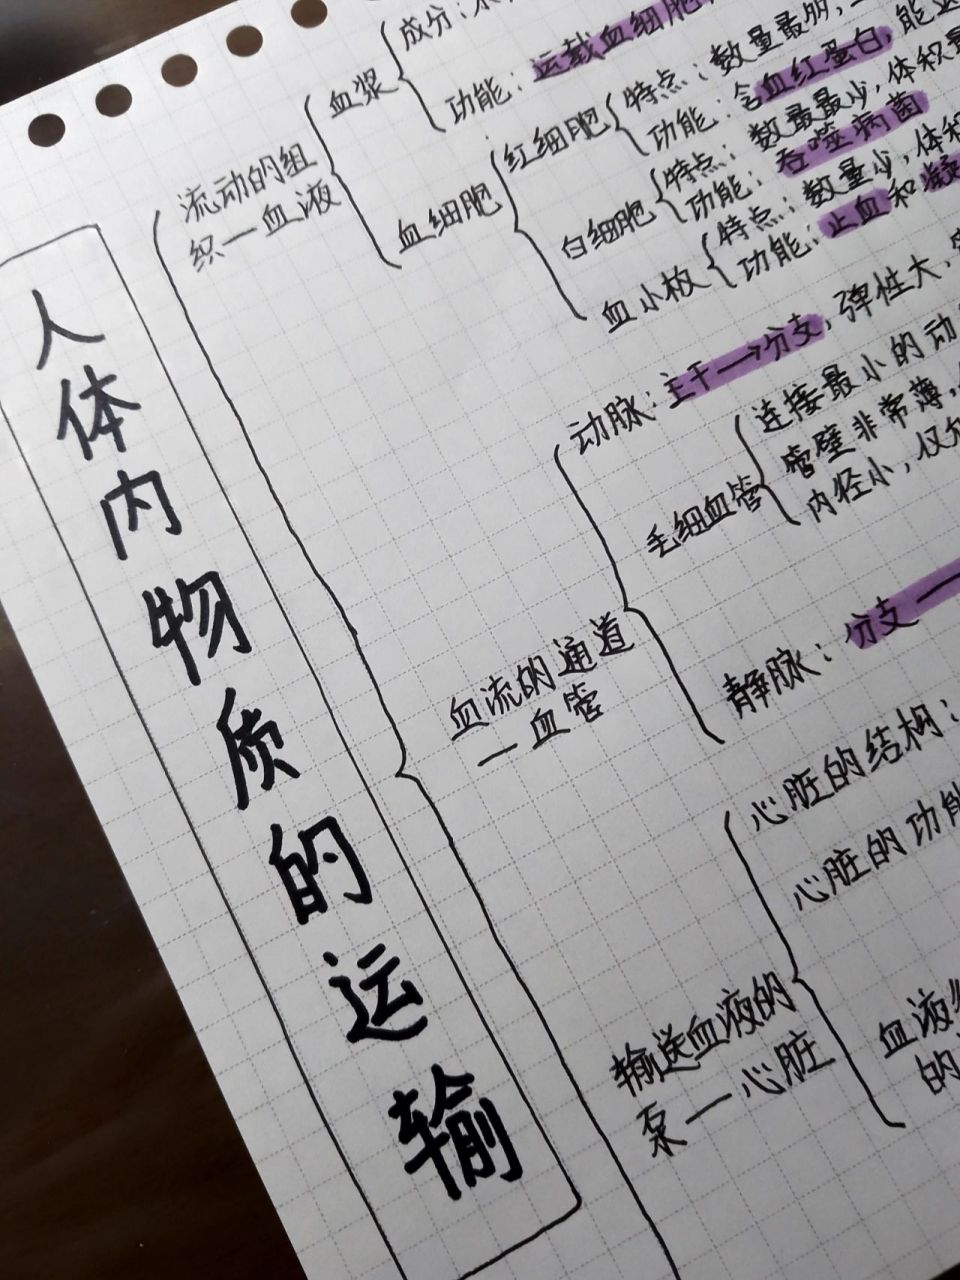 人体内物质的运输
流动的组
织一血液
血浆
成分:水
功能:运载血细胞,
血细胞
红细胞
特点:数量最多,
功能:含血红蛋白,能
白细胞
特点:数量最少,体积最
功能:吞噬病菌
血小板
特点:数量少,体积
功能:止血和凝
血流的通道
一血管
动脉:主干→分支,弹性大,
毛细血管
连接最小的动
管壁非常薄,
内径小,仅允
静脉:分支一
输送血液的
泵一心脏
心脏的结构:
心脏的功能
血液
的